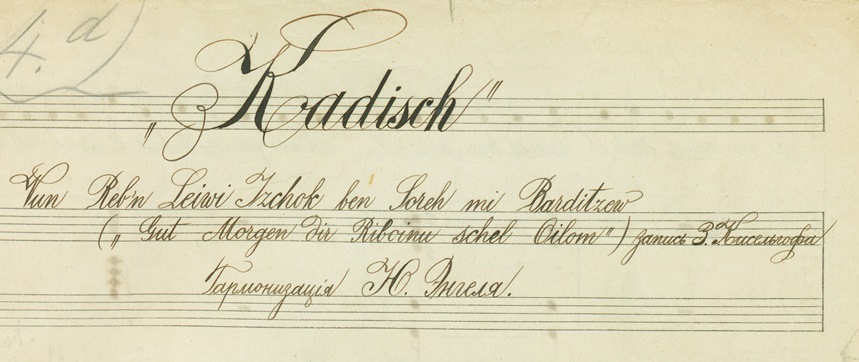 4.d)
„Kadisch"
Vun Reb'n Leiwi Jzchok ben Soreh mi Barditzew
(„Gut Morgen dir Riboinu schel Oilom") запись З. Кисельгофа
Гармонизація Ю. Энгеля.